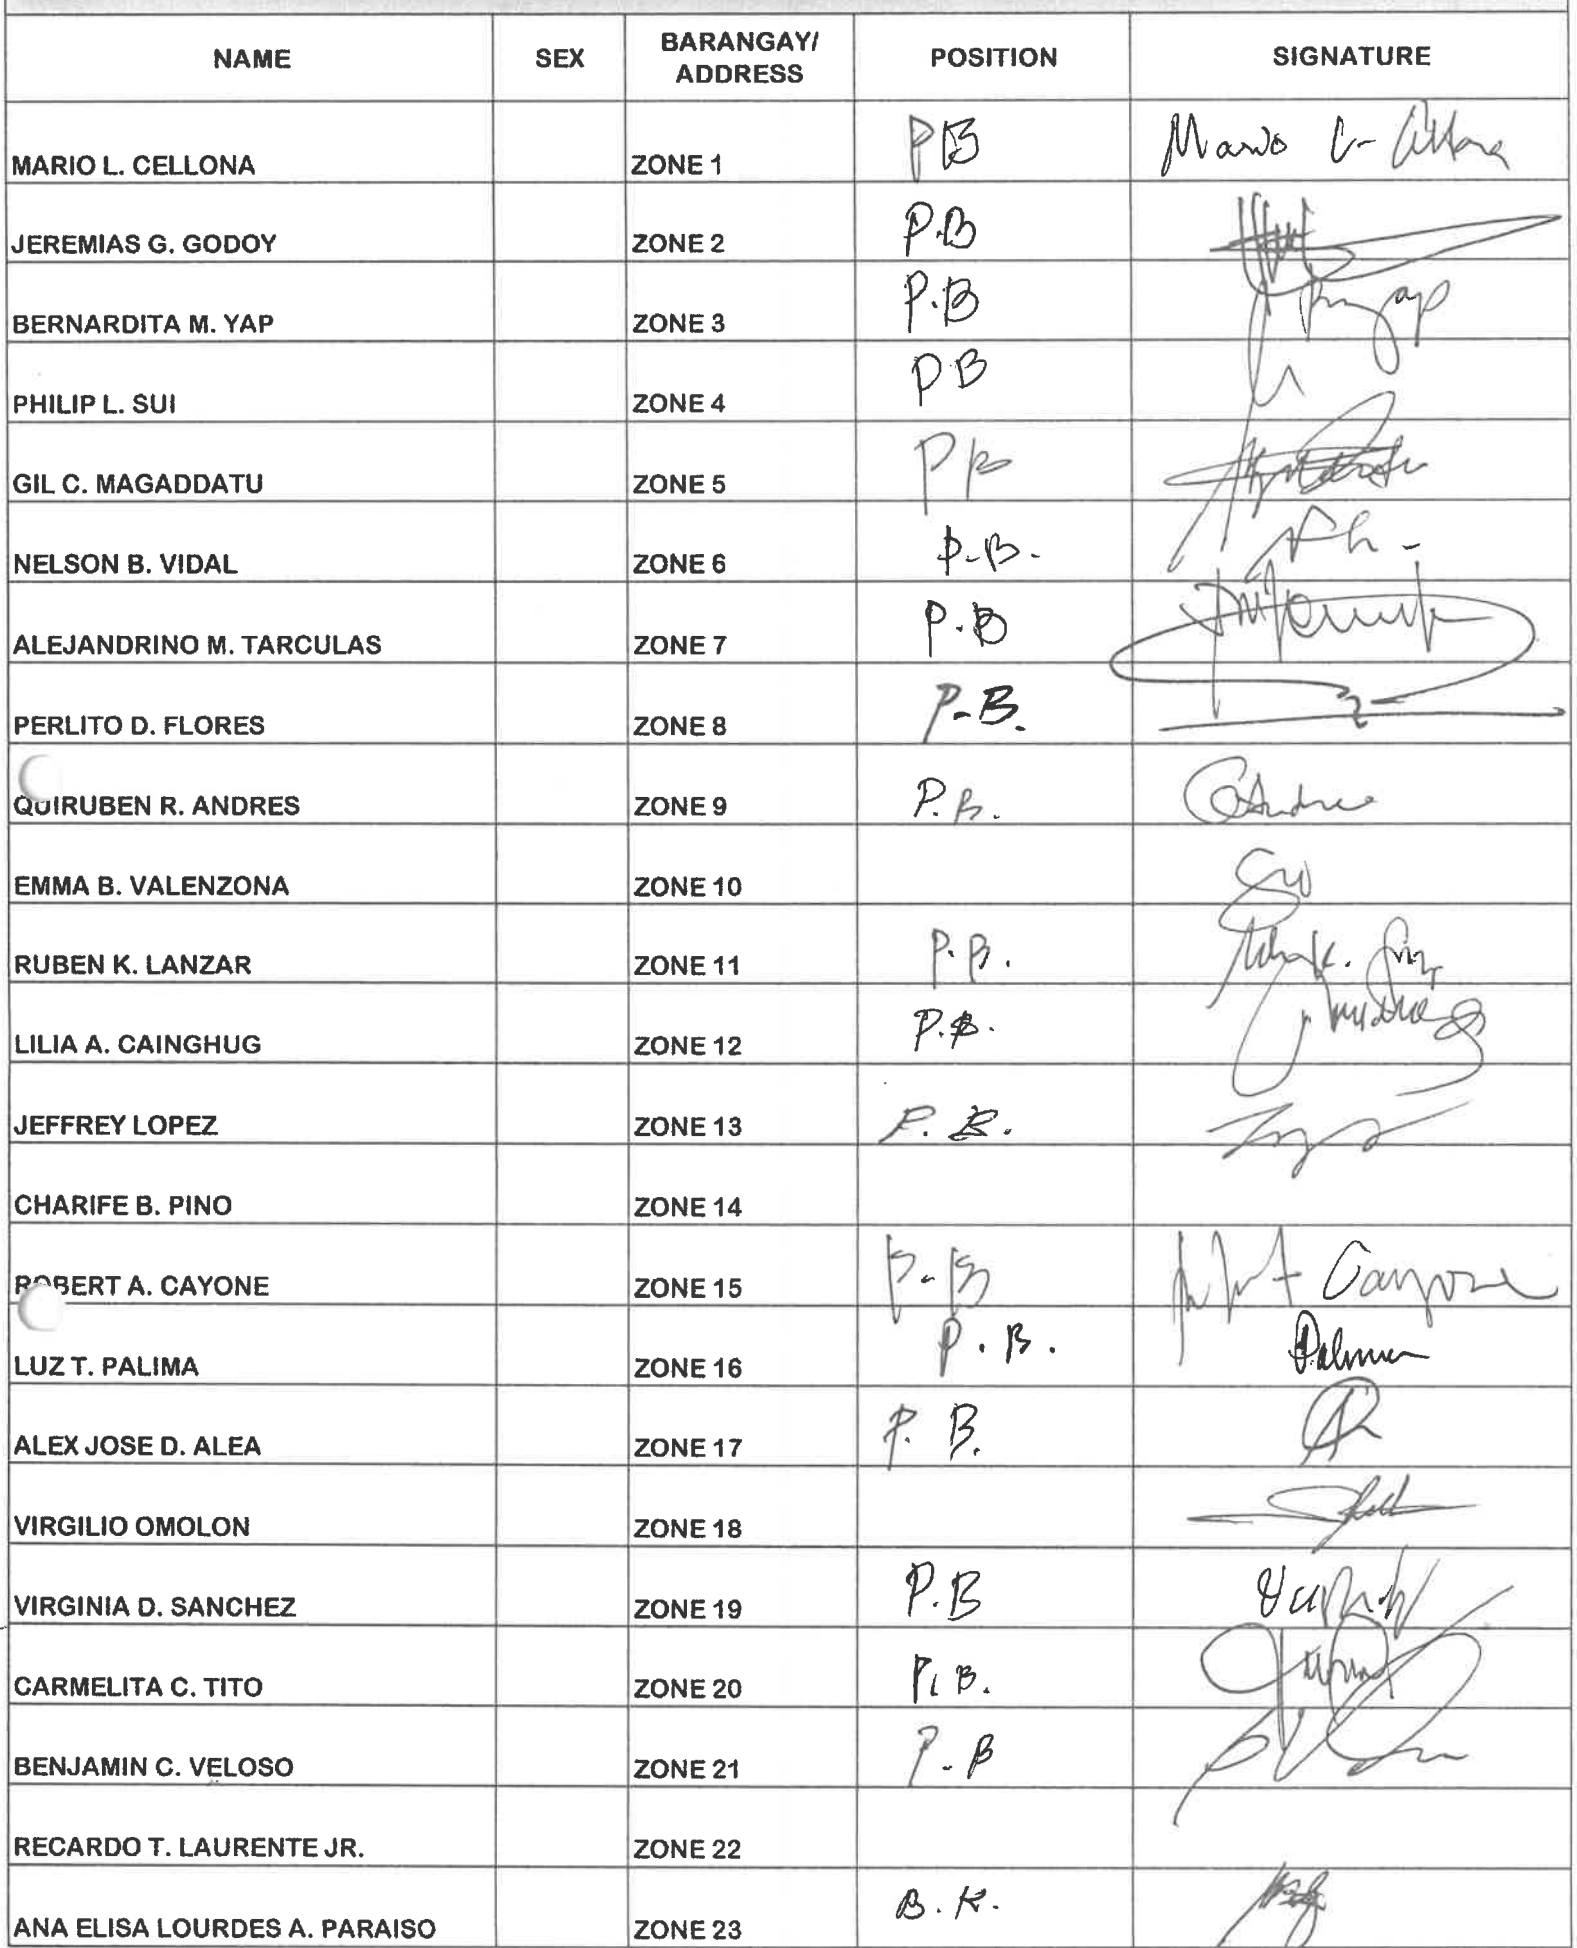 NAME SEX BARANGAY/ ADDRESS POSITION SIGNATURE
MARIO L. CELLONA ZONE 1 PB Mario L. Cellona
JEREMIAS G. GODOY ZONE 2 P.B
BERNARDITA M. YAP ZONE 3 P.B
PHILIP L. SUI ZONE 4 P.B
GIL C. MAGADDATU ZONE 5 PB
NELSON B. VIDAL ZONE 6 P-B.
ALEJANDRINO M. TARCULAS ZONE 7 P.B
PERLITO D. FLORES ZONE 8 P-B.
QUIRUBEN R. ANDRES ZONE 9 P.B.
EMMA B. VALENZONA ZONE 10
RUBEN K. LANZAR ZONE 11 P.B.
LILIA A. CAINGHUG ZONE 12 P.B.
JEFFREY LOPEZ ZONE 13 P.B.
CHARIFE B. PINO ZONE 14
ROBERT A. CAYONE ZONE 15 P-B Cayone
LUZ T. PALIMA ZONE 16 P.B. Palima
ALEX JOSE D. ALEA ZONE 17 P.B.
VIRGILIO OMOLON ZONE 18
VIRGINIA D. SANCHEZ ZONE 19 P.B
CARMELITA C. TITO ZONE 20 P.B.
BENJAMIN C. VELOSO ZONE 21 P.B
RECARDO T. LAURENTE JR. ZONE 22
ANA ELISA LOURDES A. PARAISO ZONE 23 B.K.